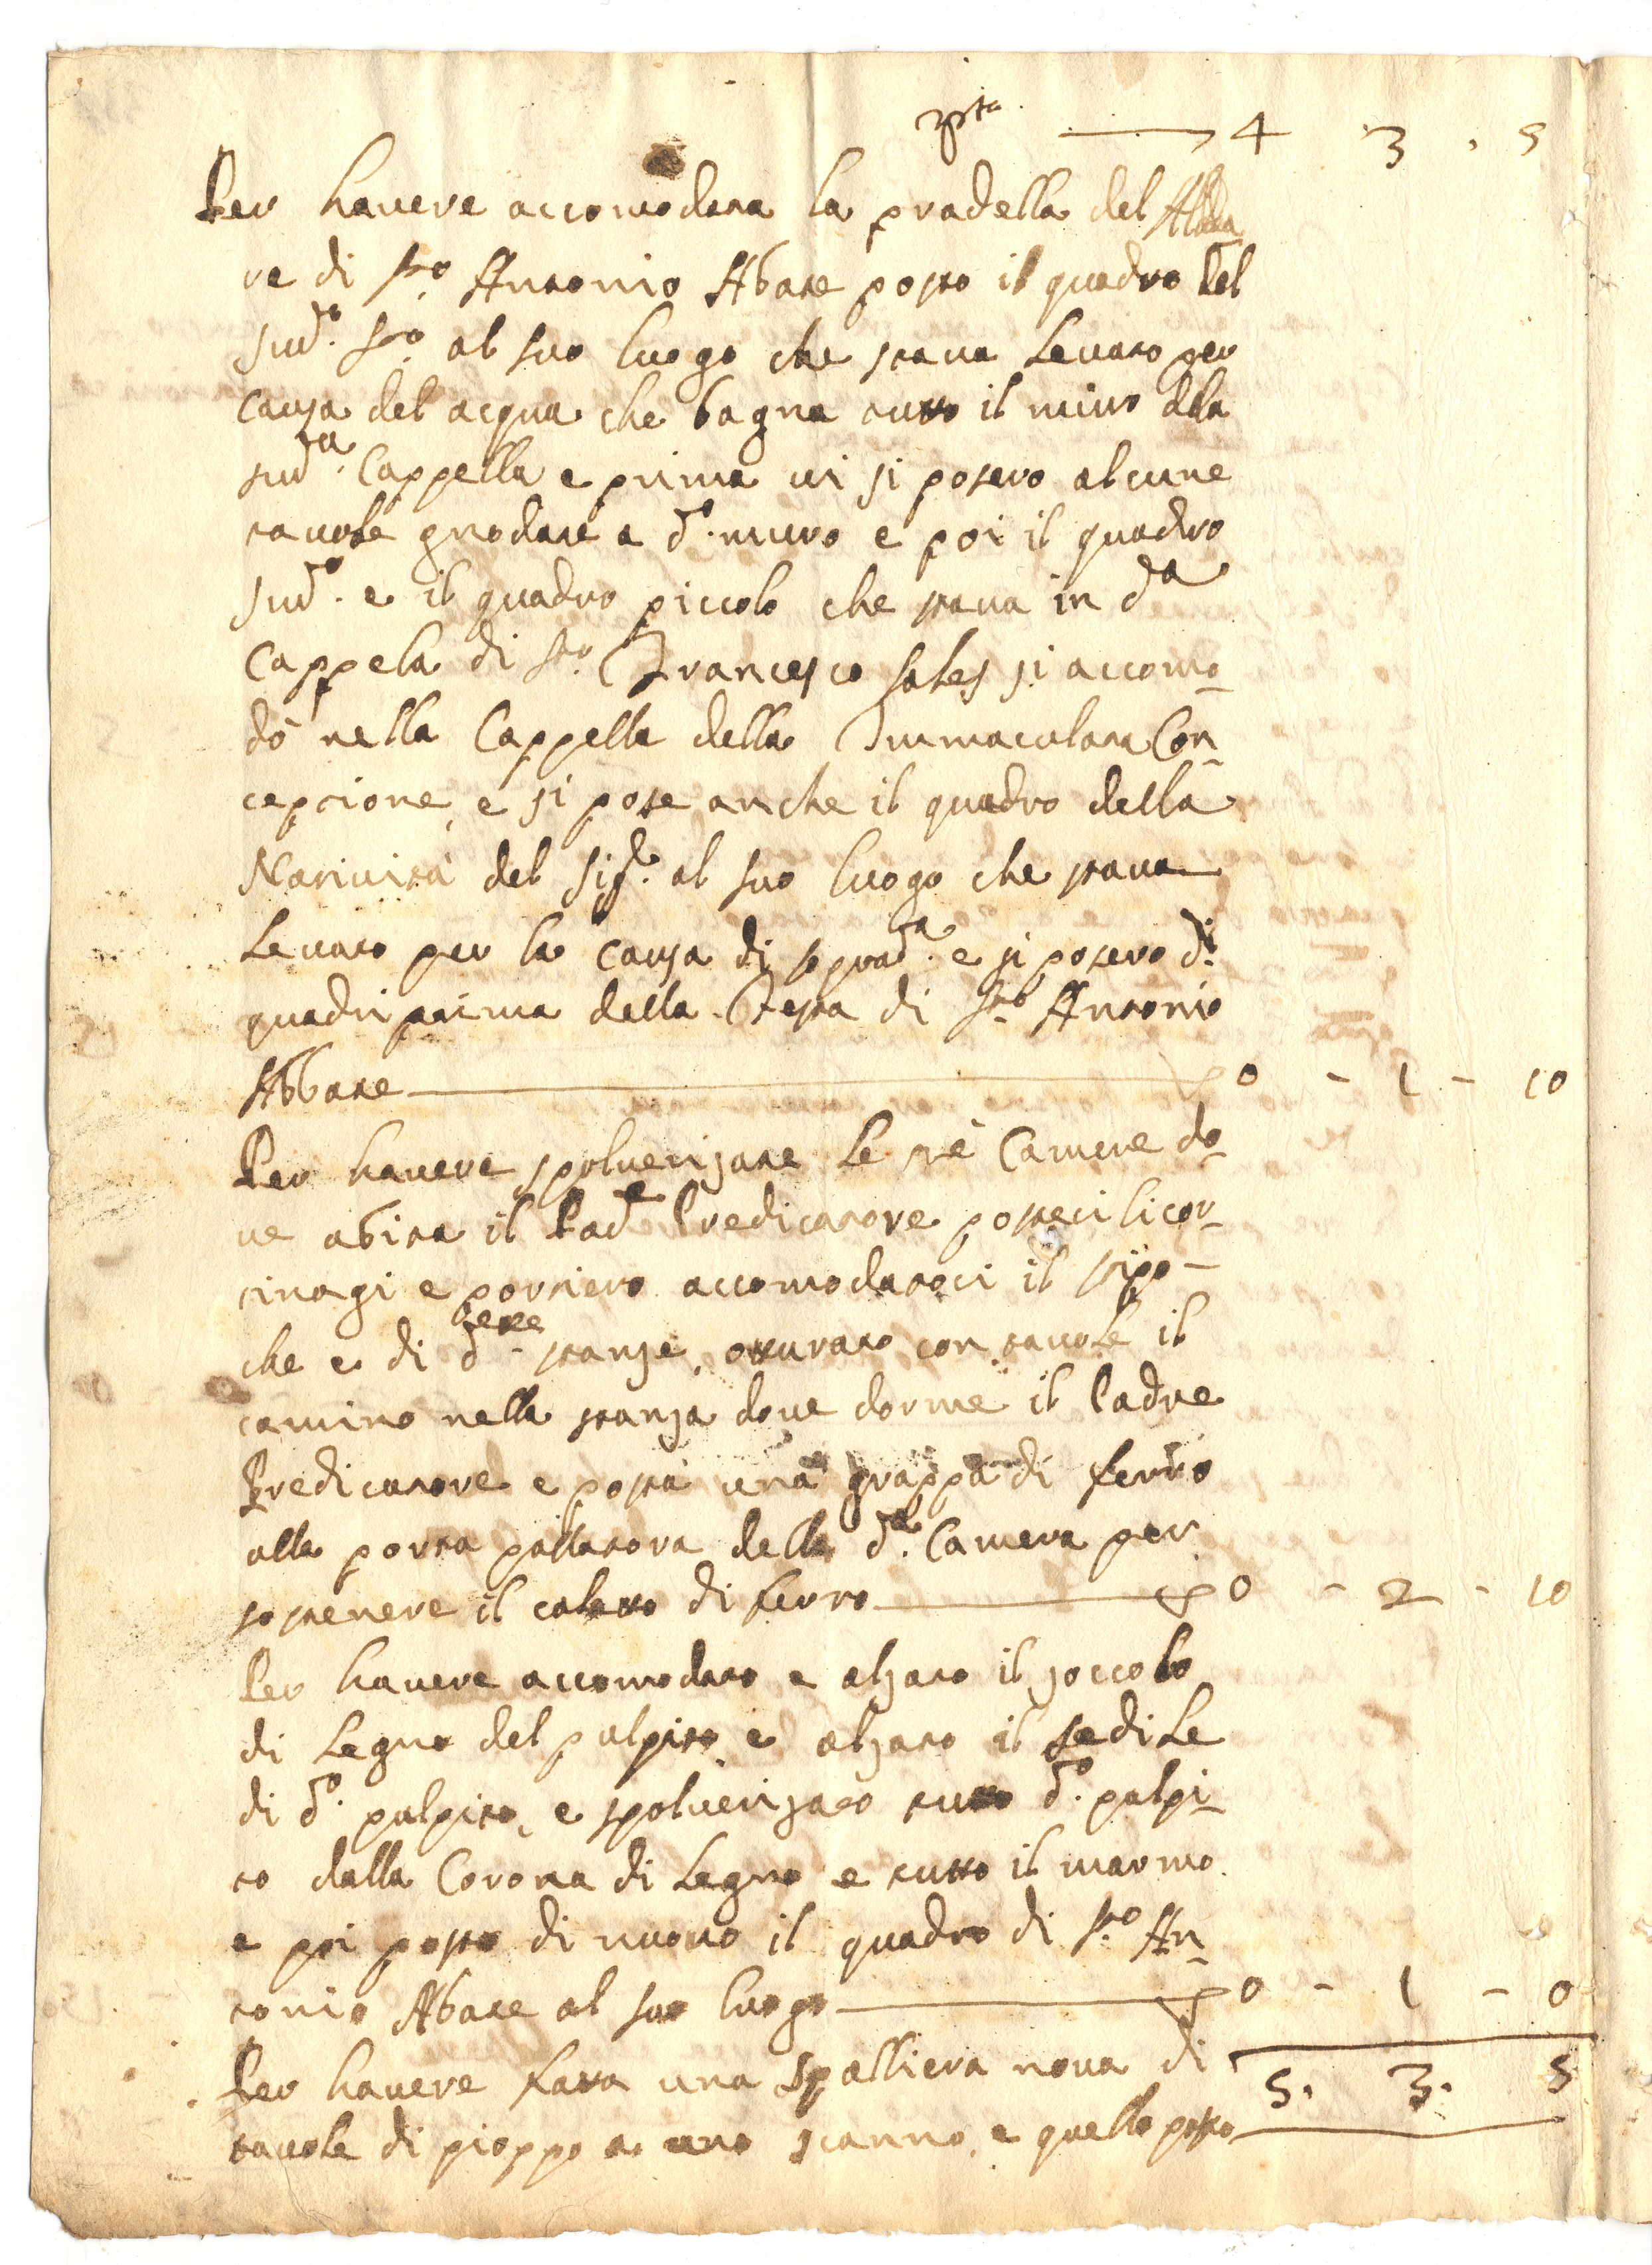 4 3 . 5
Per havere accomodata la pradella del Alta
re di sto. Antonio Abate posto il quadro del
sudo. sto. al suo luogo che stava levato per
causa del acqua che bagna tutto il muro dlla
suda. Cappella e prima vi si posero alcune
tavole gnodate a do. muro e poi il quadro
sudo. e il quadro piccolo che stava in da
Cappela di sto. Francesco Sales si accomo-
dò nella Cappella della Immaculata Con-
cepcione, e si pose anche il quadro della
Natività del Sige. al suo luogo che stava
levato per la causa di soprada. e si posero di.
quadri prima della Festa di sto. Antonio
Abbate 0 - 1 - 10
Per havere spolverizate le trè Camere do-
ve abita il Pade Predicatore posteci li cor-
tinagi e portiero accomodatoci il stipo -
che e di dette stanze, otturato con tavole il
camino nella stanza dove dorme il Padre
Predicatore e posta una grappa di ferro
alla porta della da. Camera per
sostenere il catetto di ferro 0 - 2 - 10
Per havere accomodato e alzato il zoccolo
di legno del pulpito e alzato il sedile
di do. pulpito, e spolverizato tutto do. pulpi-
to dalla Corona di legno e tutto il marmo
e poi posto di nuovo il quadro di sto. An-
tonio Abate al suo luogo 0 - 1 - 0
Per havere fatta una spalliera nova di
5. 3. 5
tavole di pioppo a uno scanno, e quello posto